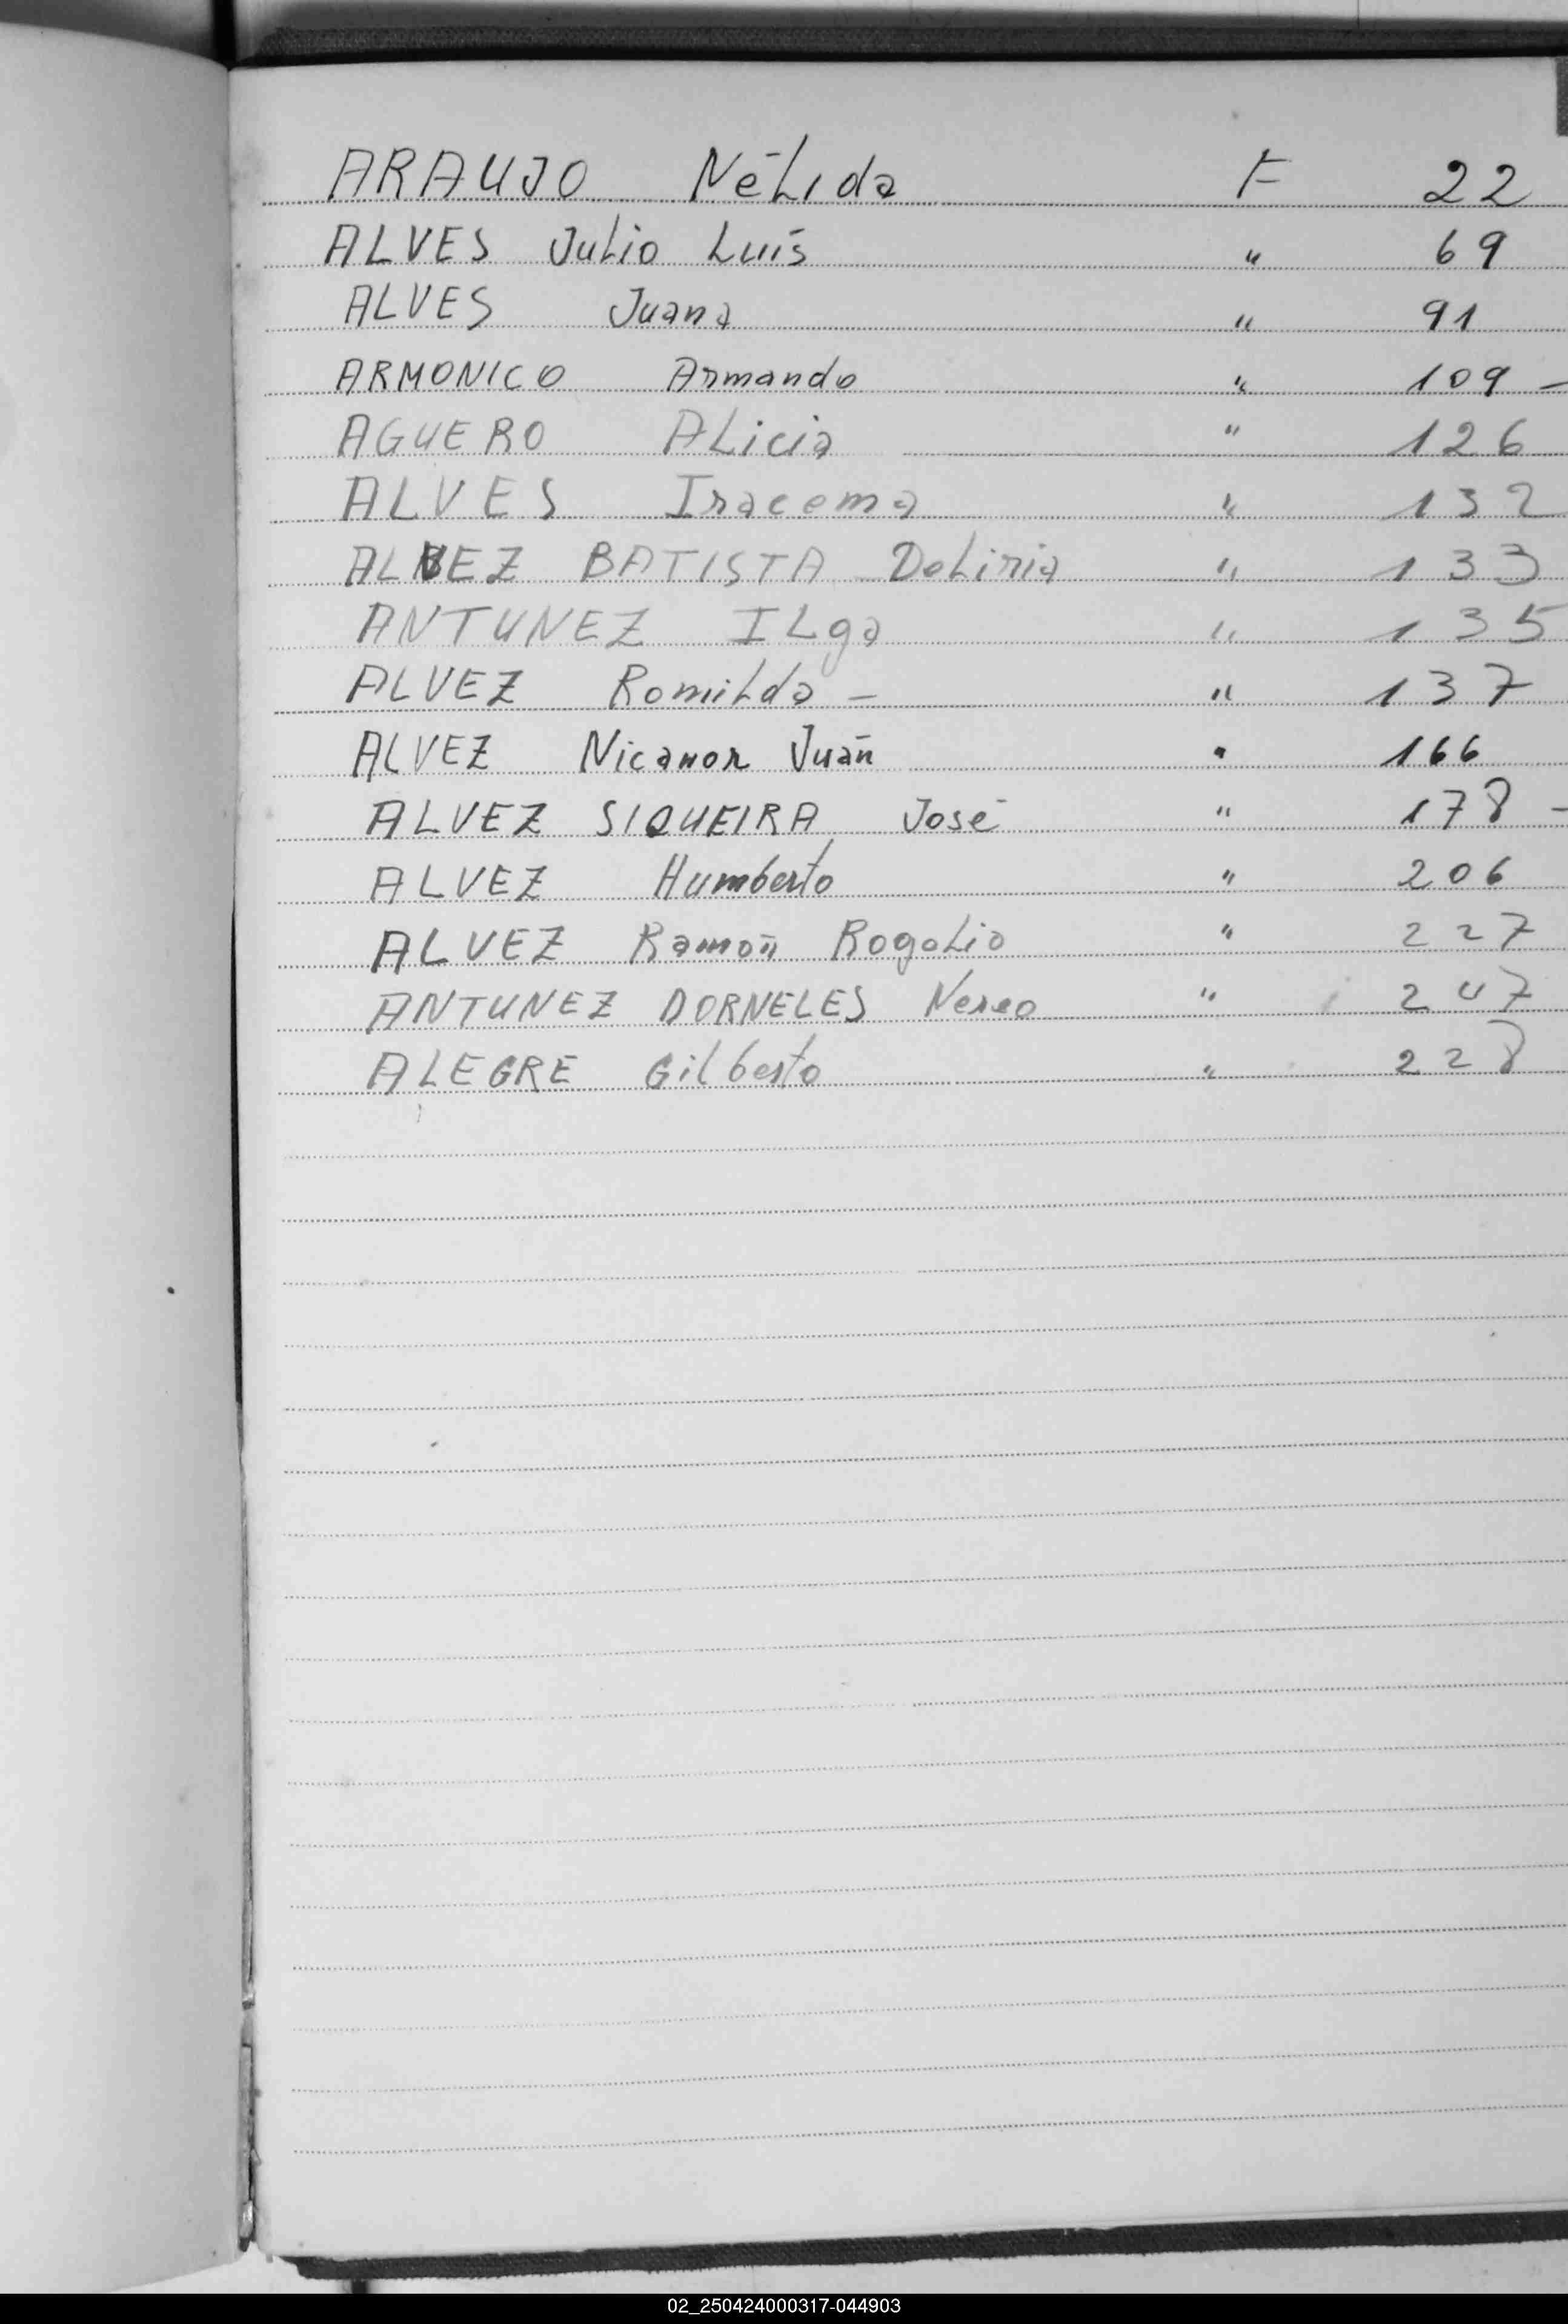 ARAUJO Nélida F 22
ALVES Julio Luís " 69
ALVES Juana " 91
ARMONICO Armando " 109 -
AGUERO Alicia " 126
ALVES Iracema " 132
ALVEZ BATISTA Deliria " 133
ANTUNEZ ILga " 135
ALVEZ Romilda - " 137
ALVEZ Nicanor Juán " 166
ALVEZ SIQUEIRA José " 178 -
ALVEZ Humberto " 206
ALVEZ Ramón Rogelio " 227
ANTUNEZ DORNELES Nereo " 247
ALEGRE Gilberto " 228
02_250424000317-044903